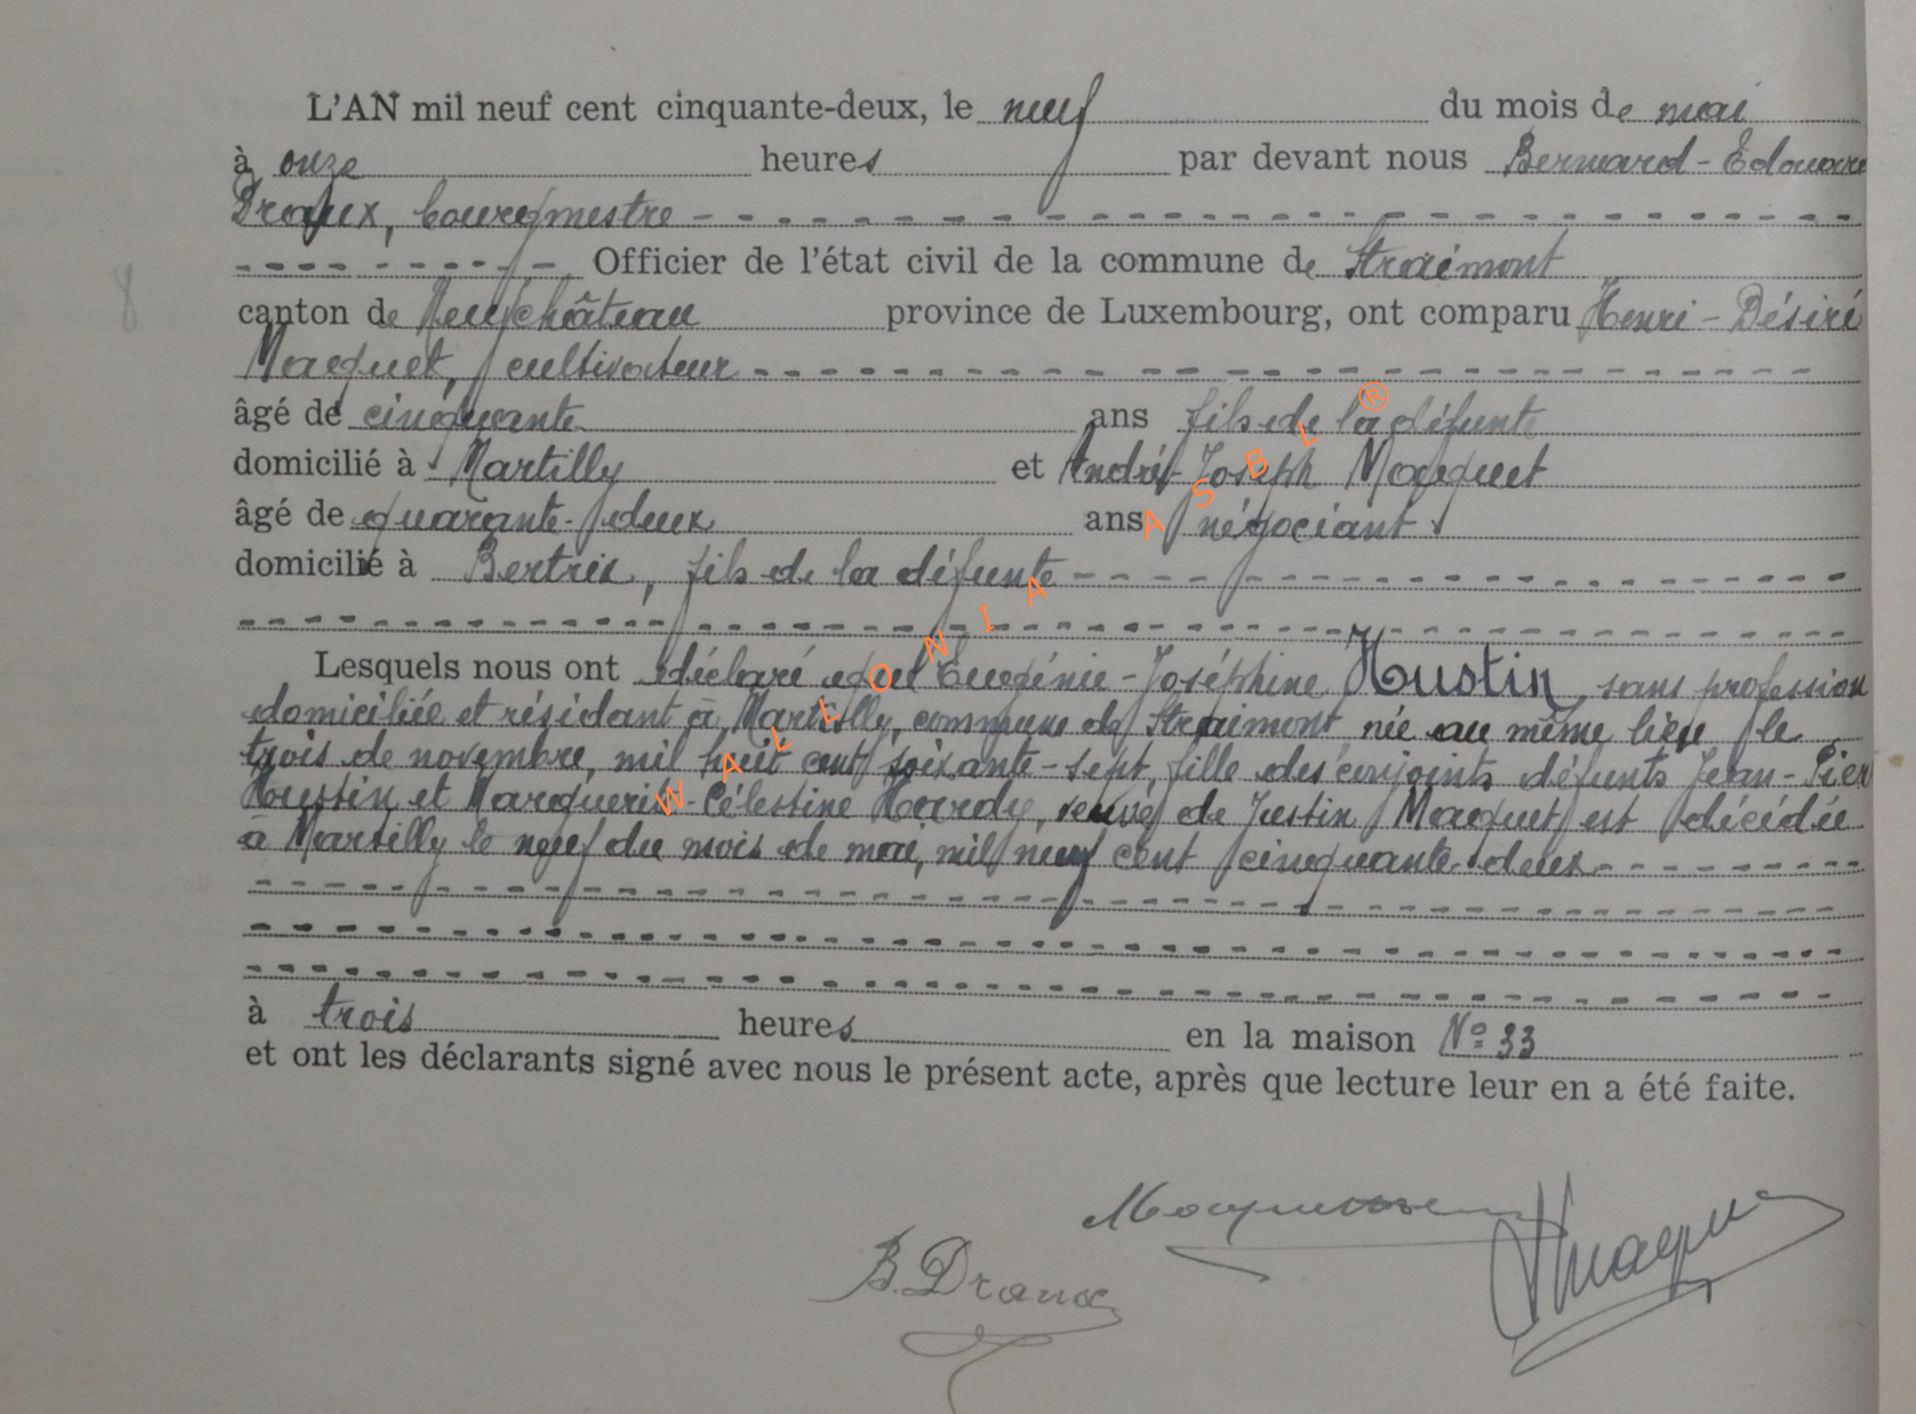 L'AN mil neuf cent cinquante-deux, le neuf du mois de mai
à onze heures par devant nous Bernard-Edouard
Draux, bourgmestre
Officier de l'état civil de la commune de Straimont
canton de Neufchâteau province de Luxembourg, ont comparu Henri-Désiré
Maquet, cultivateur
âgé de cinquante ans fils de la défunte
domicilié à Martilly et André-Joseph Maquet
âgé de quarante-deux ans négociant
domicilié à Bertrix, fils de la défunte
Lesquels nous ont déclaré que Eugénie-Joséphine Hustin, sans profession
domiciliée et résidant à Martilly, commune de Straimont née au même lieu le
trois de novembre, mil huit cent soixante-sept, fille des conjoints défunts Jean-Pier
Hustin et Marguerite-Célestine Hardy, veuve de Justin Maquet est décédée
à Martilly le neuf du mois de mai, mil neuf cent cinquante-deux
à trois heures en la maison N° 33
et ont les déclarants signé avec nous le présent acte, après que lecture leur en a été faite.
B. Draux
8
WALLONIA ASBL ®